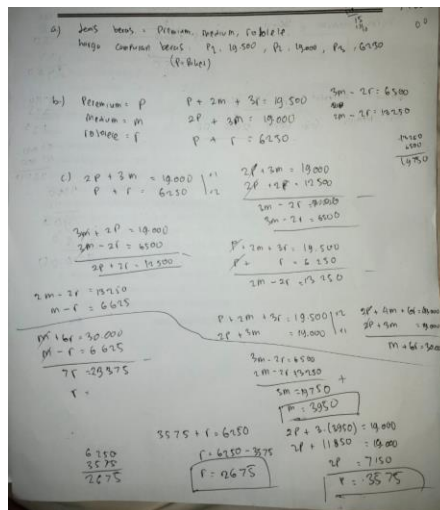 a) Jenis beras : Premium, medium, rojolele
harga campuran beras : P1 : 19.500, P2 : 19.000, P3 : 6250
b) Peremium = P
medium = m
rojolele = r
P + 2m + 3r = 19.500
2P + 3m = 19.000
P + r = 6250
3m - 2r = 6500
2m - 2r = 13250
13250
6500
19750
c) 2P + 3m = 19.000 | x1
P + r = 6250 | x2
2P + 3m = 19.000
2P + 2r = 12500
3m - 2r = 6500
3m + 2P = 19.000
3m - 2r = 6500
2P + 2r = 12500
P + 2m + 3r = 19.500
P + r = 6250
2m - 2r = 13250
2m - 2r = 13250
m - r = 6625
P + 2m + 3r = 19.500 | x2
2P + 3m = 19.000 | x1
2P + 4m + 6r =
2P + 3m = 19.000
m + 6r = 30.000
m + 6r = 30.000
m - r = 6625
7r = 29375
r =
3m - 2r = 6500
2m - 2r 13250
+
5m = 19750
m = 3950
3575 + r = 6250
r = 6250 - 3575
r = 2675
6250
3575
2675
2P + 3.(3950) = 19.000
2P + 11850 = 19.000
2P = 7150
P = 3575